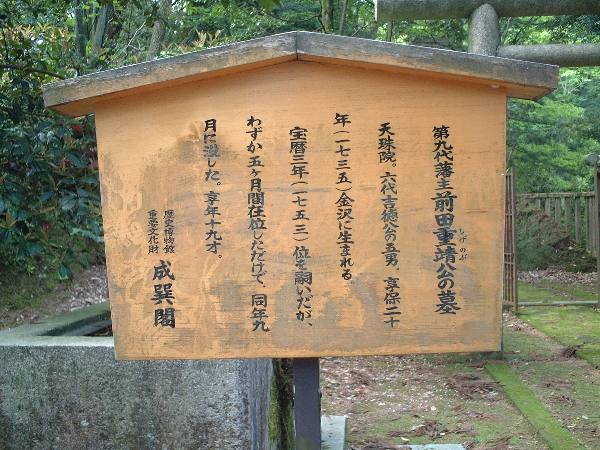 第九代藩主前田重靖公の墓
しげのぶ
天珠院。六代吉徳公の五男。享保二十
年（一七三五）金沢に生まれる。
宝暦三年（一七五三）位を嗣いだが、
わずか五ヶ月間在位しただけで、同年九
月に没した。享年十九才。
歴史博物館
重要文化財
成巽閣